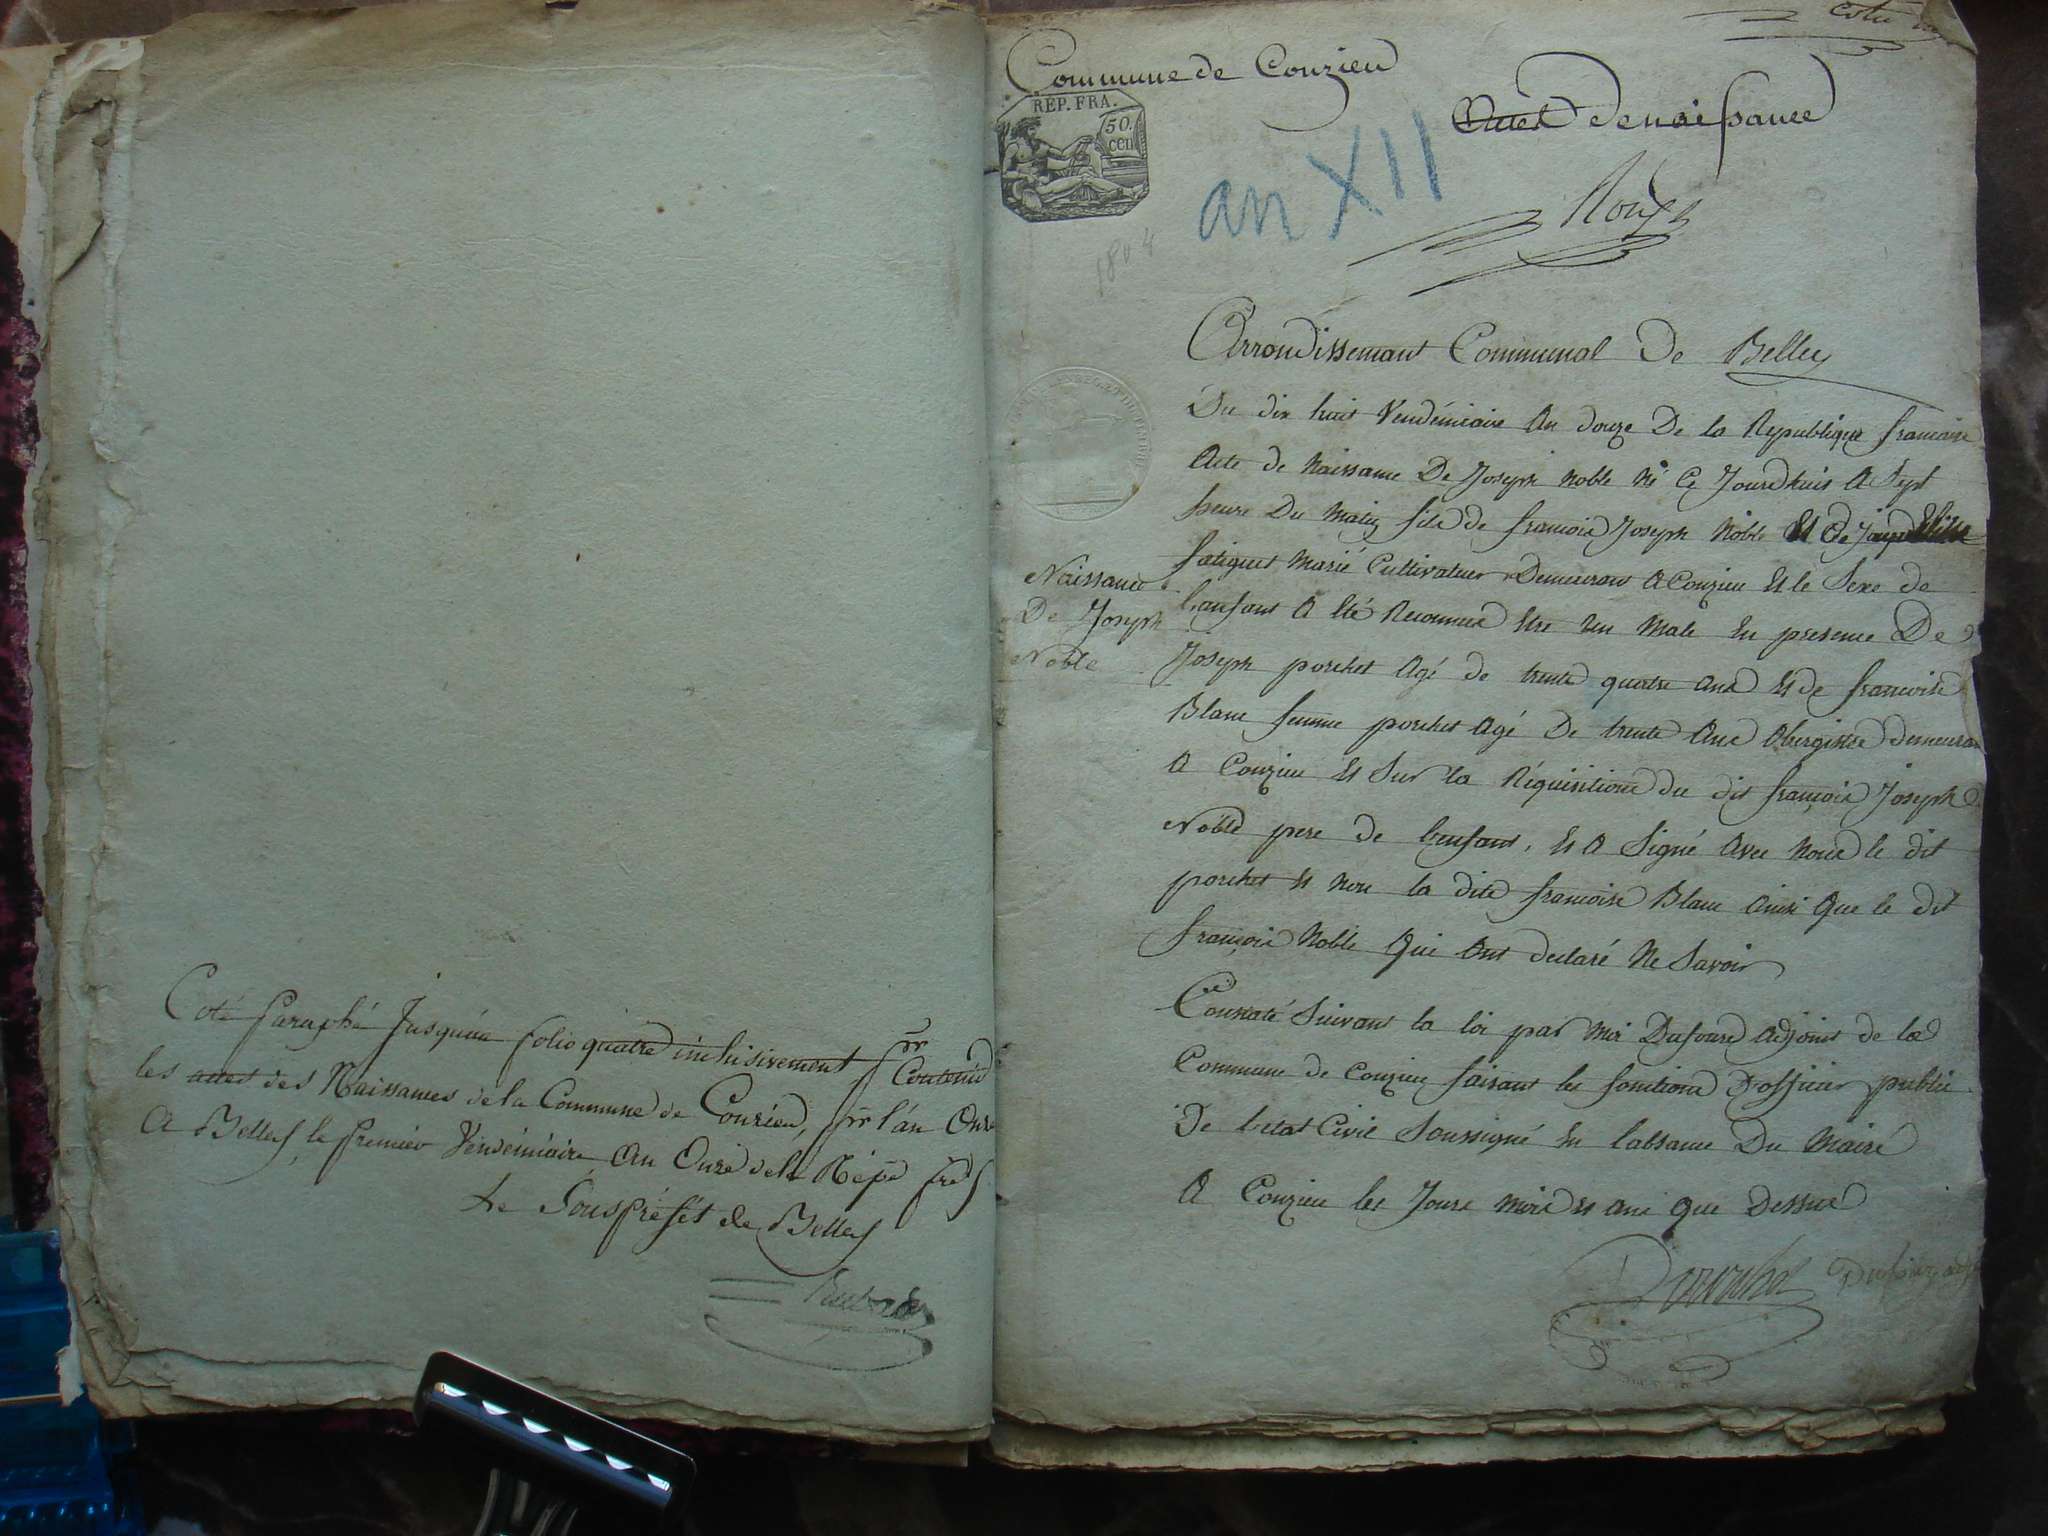 Coté Paraphé Jusqu'au folio quatre inclusivement pr Contenir
les actes des Naissances de la Commune de Conzieu, pr l'an Onze
A Belley le premier Vendémiaire an Onze de la Répe fres
Le Sous préfet de Belley
Commune de Conzieu
REP. FRA.
50.
cen
an XII
1804
Actes de naissance
Roux
Arrondissemant Communal de Belley
Du dix huit Vendémiaire An douze De la Republique francaise
Acte de Naissance De Joseph Noble Né Ce Jourdhuis A Sept
heure Du Matin fils de francois Joseph Noble Et de
fatiguet Marié Cultivateur Demeurant A Conzieu Et le Sexe de
L'anfant A Eté Reconnus Etre un Male En presence De
Joseph porchet Agé de trente quatre ans Et de francoise
Blanc femme porchet Agé De trente Ans Obergiste demeurant
A Conzieu Et Sur la Réquisitione du dit françois Joseph
Noble pere de L'enfant, Et A Signé Avec Nous le dit
porchet Et Non la dite francoise Blanc Ainsi Que le dit
françois Noble Qui Ont declaré Ne Savoir
Naissance
De Joseph
Noble
Constaté Suivant la loi par Moi Dufour Adjoint de la
Commune de Conzieu faisant les fonctions D'officier public
De L'etat Civil Soussigné En L'absance Du Maire
A Conzieu les Jours Mois Et ans Que Dessus